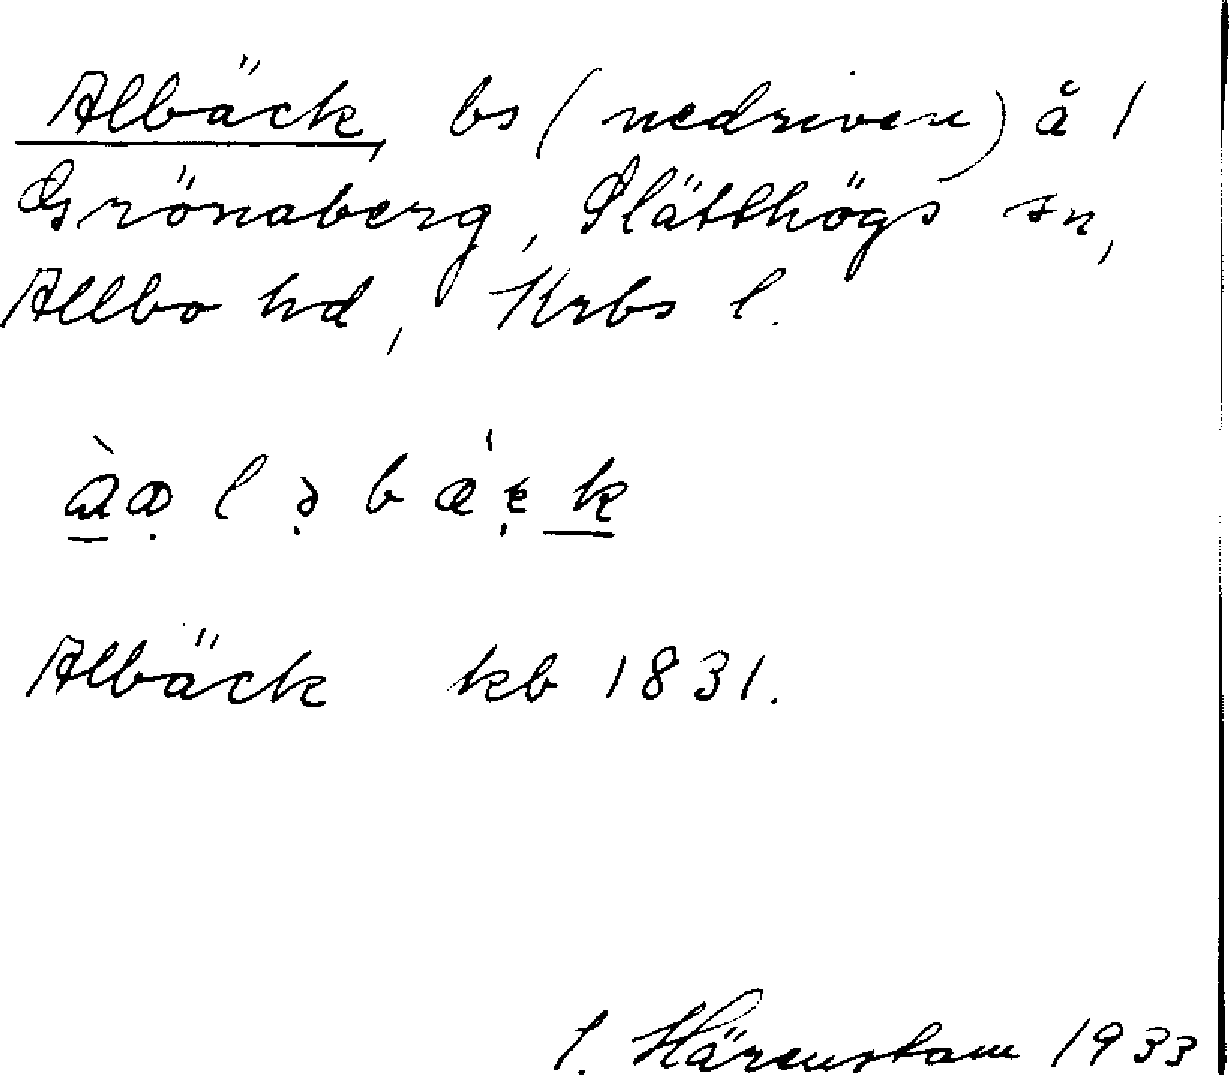 Albäck, bs (nedriven) å 1
Grönaberg, Slätthögs sn,
Allbo hd, Krbs l.
Albäck kb 1831.
Härenstam 1933